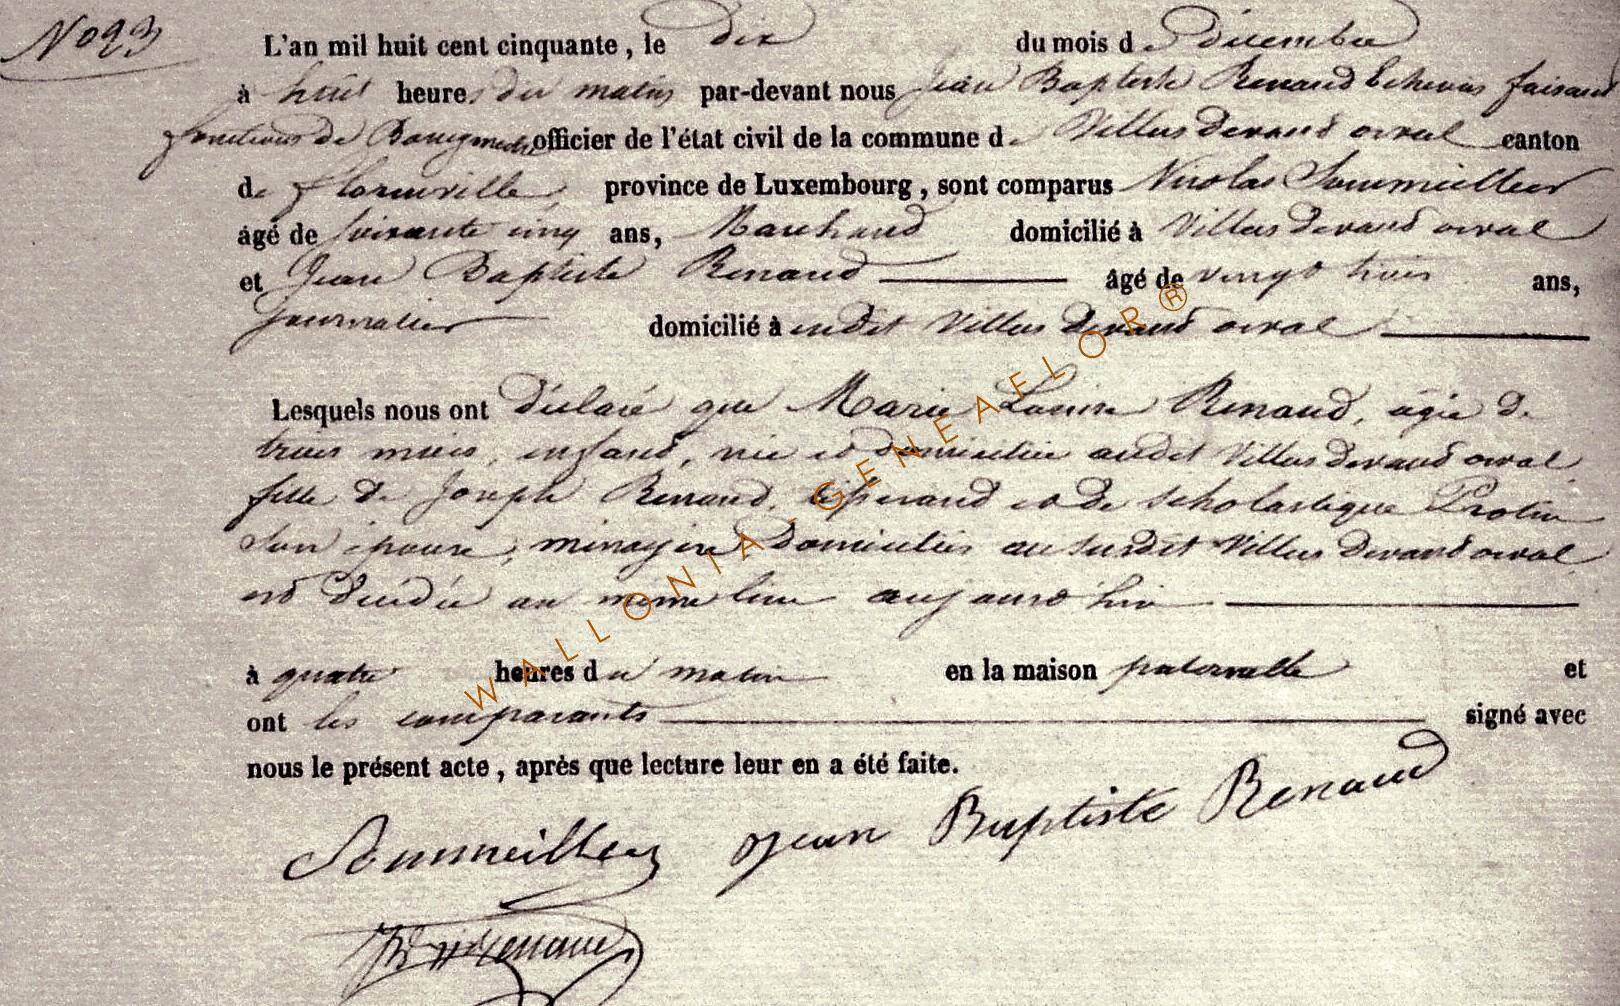 No 23
L'an mil huit cent cinquante, le dix du mois de décembre
à huit heures du matin par-devant nous Jean Baptiste Renaud Echevin faisant
fonctions de Bourgmestre officier de l'état civil de la commune de Villers devant orval canton
de florenville, province de Luxembourg, sont comparus Nicolas Soumeillier
âgé de soixante cinq ans, Marchand domicilié à Villers devant orval
et Jean Baptiste Renaud âgé de vingt trois ans,
journalier domicilié à audit Villers devant orval
Lesquels nous ont déclaré que Marie Louise Renaud, agée de
trois mois, enfant, née et domiciliée audit Villers devant orval
fille de Joseph Renaud, et de Scholastique Protin
son épouse, ménagère domiciliés au susdit Villers devant orval
est décédée au même lieu aujourd'hui
à quatre heures du matin en la maison paternelle et
ont les comparants signé avec
nous le présent acte, après que lecture leur en a été faite.
Soumeillier Jean Baptiste Renaud
Renaud
WALLONIA-GENEAFLOR®